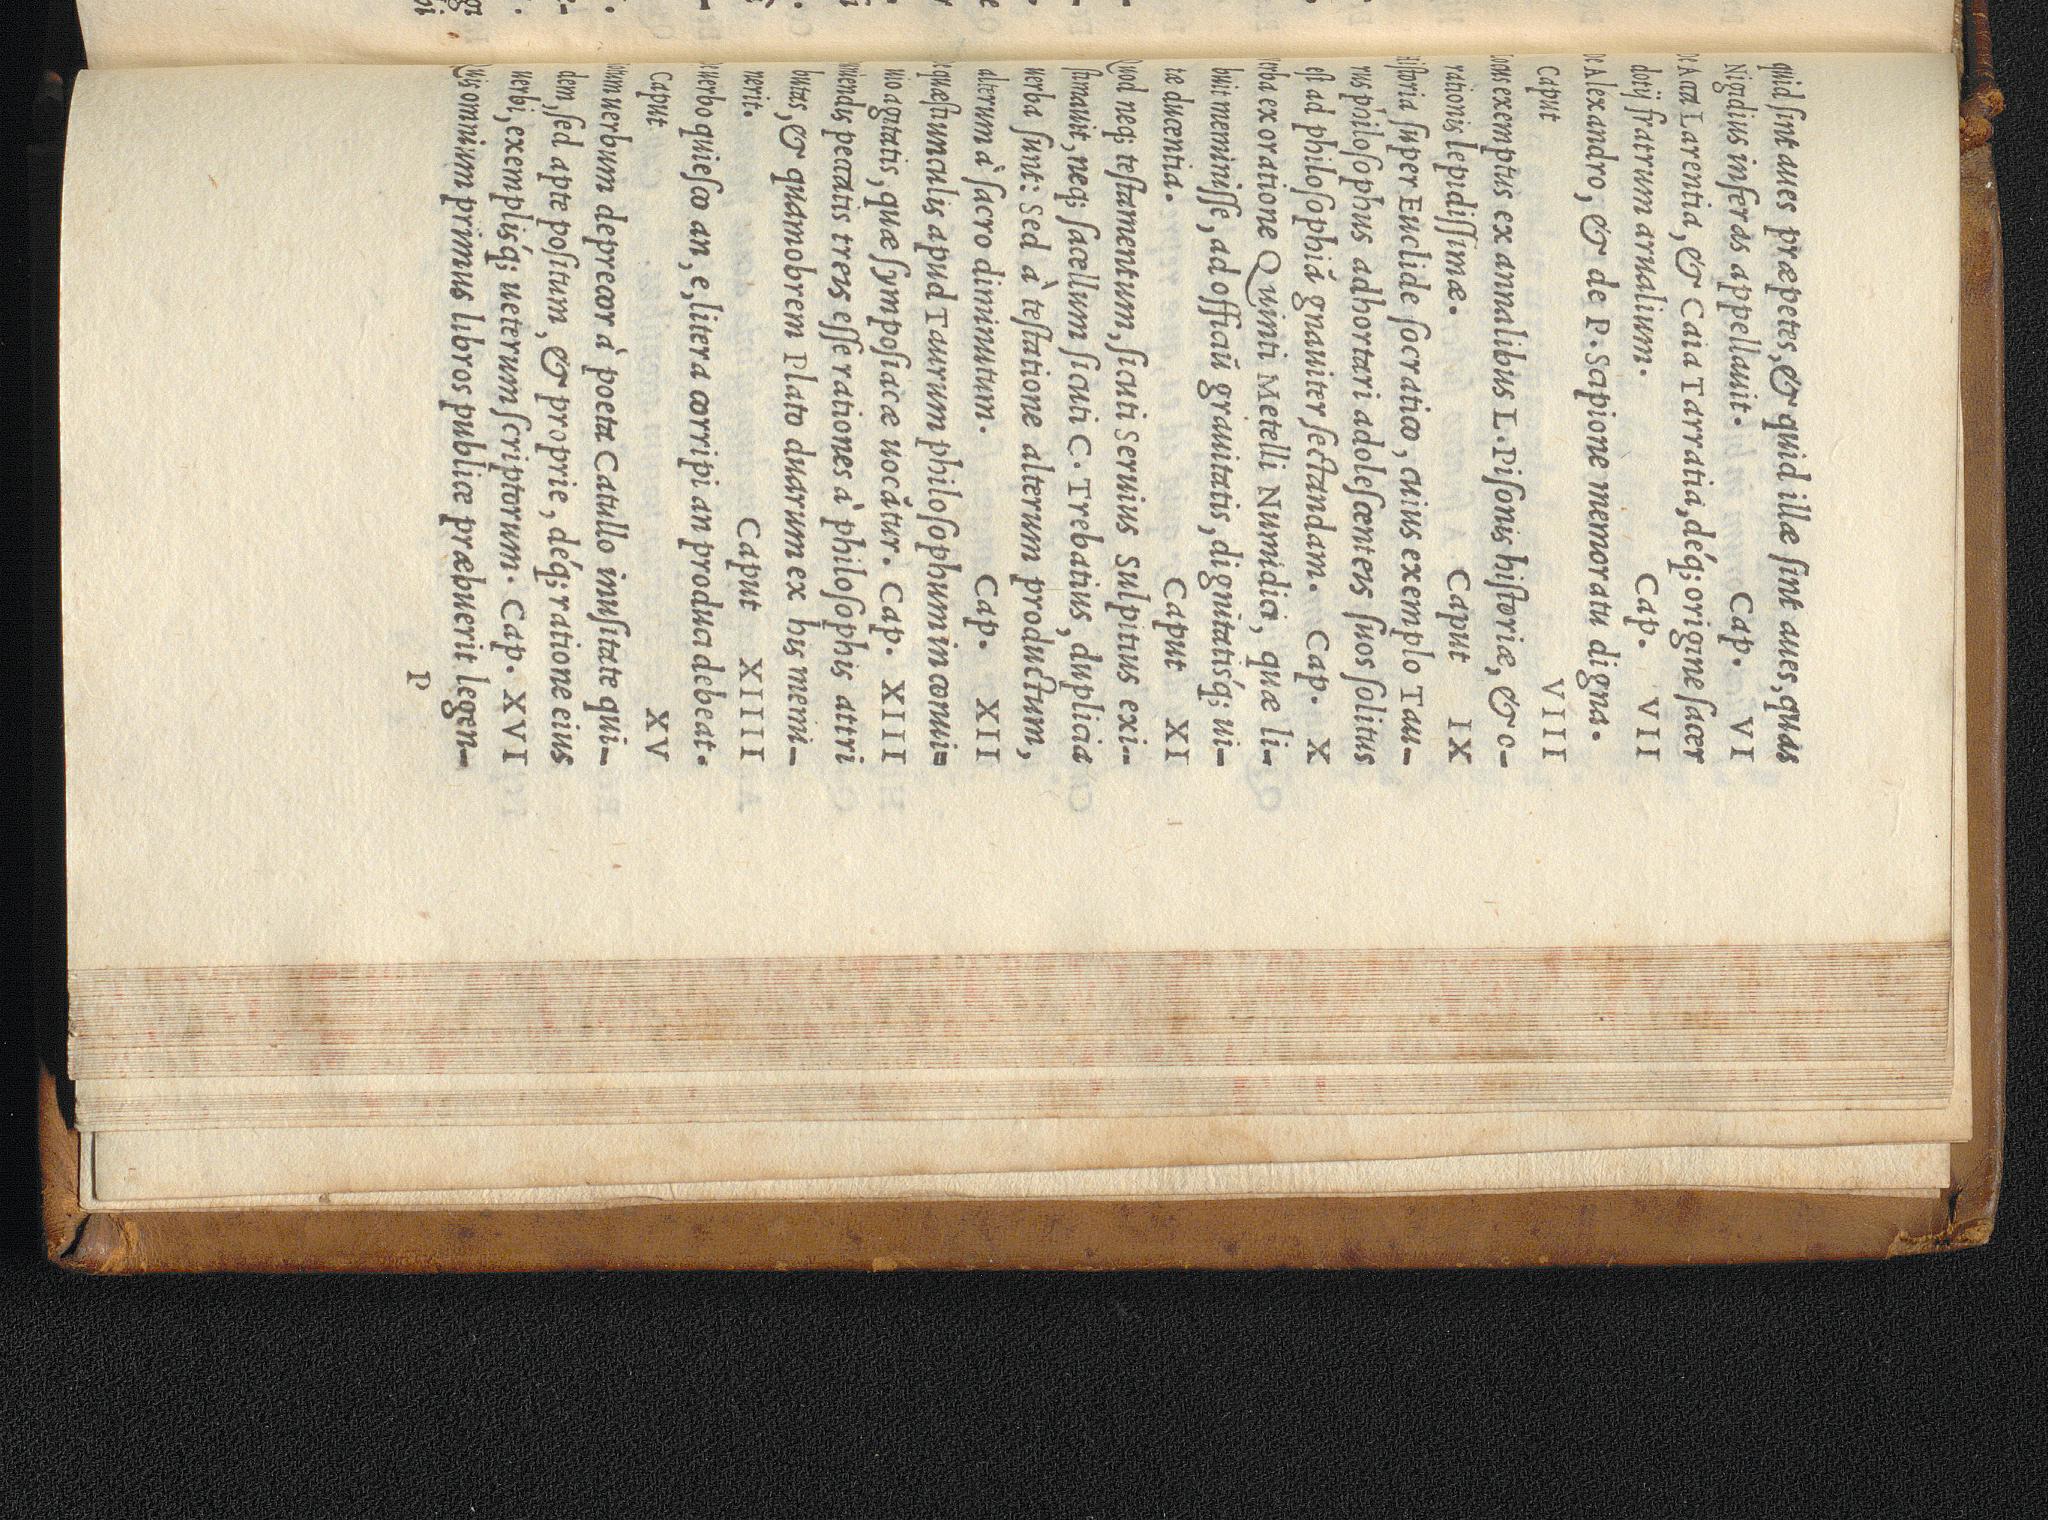 quid ſint aues præpetes, & quid illæ ſint aues, quas
Nigidius inferas appellauit. Cap. VI
De Acca Larentia, & Caia Tarratia, deq; origine ſacer
dotij fratrum arualium. Cap. VII
De Alexandro, & de P. Scipione memoratu digna.
Caput VIII
Locus exemptus ex annalibus L. Piſonis hiſtoriæ, & o-
rationis lepidiſſimæ. Caput IX
Hiſtoria ſuper Euclide ſocratico, cuius exemplo Tau-
rus philoſophus adhortari adoleſcenteis ſuos ſolitus
eſt ad philoſophiã gnauiter ſectandam. Cap. X
Verba ex oratione Quinti Metelli Numidici, quæ li-
buit meminiſſe, ad officiũ grauitatis, dignitatisq; ui-
tæ ducentia. Caput XI
Quod neq; teſtamentum, ſicuti Seruius Sulpitius exi-
ſtimauit, neq; ſacellum ſicuti C. Trebatius, duplicia
uerba ſunt: Sed à teſtatione alterum productum,
alterum à ſacro diminutum. Cap. XII
De quæſtiunculis apud Taurum philoſophum in conui-
uio agitatis, quæ ſympoſiacæ uocãtur. Cap. XIII
Puniendis peccatis treis eſſe rationes à philoſophis attri
butas, & quamobrem Plato duarum ex his memi-
nerit. Caput XIIII
De uerbo quieſco an, e, litera corripi an produci debeat.
Caput XV
uerbum deprecor à poeta Catullo inuſitate qui-
dem, ſed apte poſitum, & proprie, déq; ratione eius
uerbi, exemplisq; ueterum ſcriptorum. Cap. XVI
Quis omnium primus libros publice præbuerit legen-
P